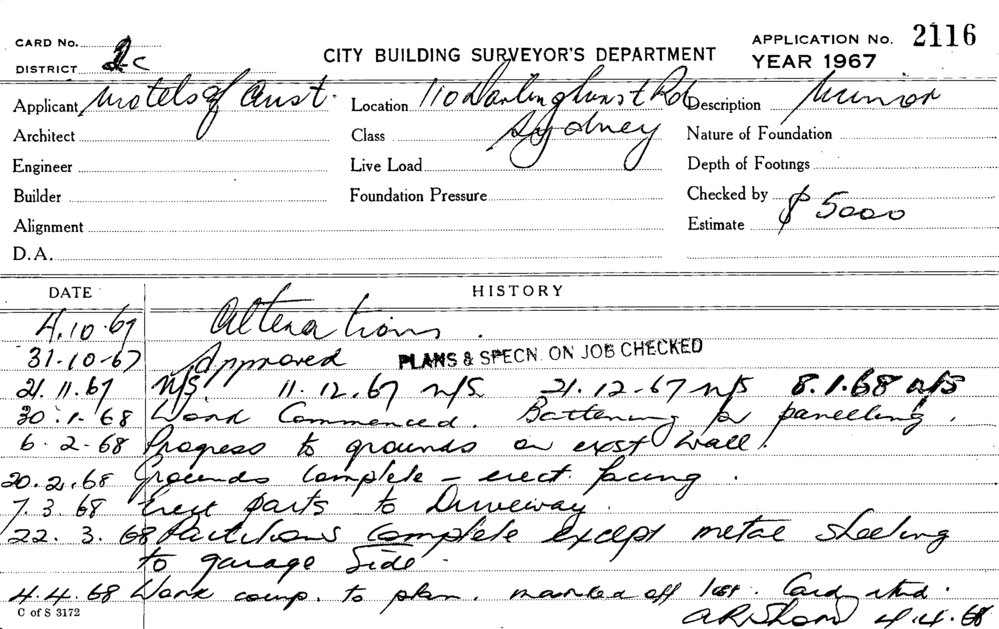 CARD No.
DISTRICT 2c
CITY BUILDING SURVEYOR'S DEPARTMENT
APPLICATION No. 2116
YEAR 1967
Applicant Motels of Aust.
Location 110 Darlinghurst Rd
Sydney
Description Minor
Architect
Class
Nature of Foundation
Engineer
Live Load
Depth of Footings
Builder
Foundation Pressure
Checked by
Alignment
Estimate $5000
D.A.
DATE HISTORY
4.10.67 Alterations.
31-10-67 Approved PLANS & SPECN. ON JOB CHECKED
21.11.67 N/S. 11.12.67 N/S. 21.12-67 N/S 8.1.68 N/S
30.1.68 Work Commenced. Battening for panelling.
6.2.68 Progress to grounds on exst wall.
20.2.68 Grounds complete - erect facing.
7.3.68 Erect parts to Driveway.
22.3.68 Partitions complete except metal sheeting
to garage side.
4.4.68 Work comp. to plan. marked off Card rtnd.
C of S 3172
4.4.68